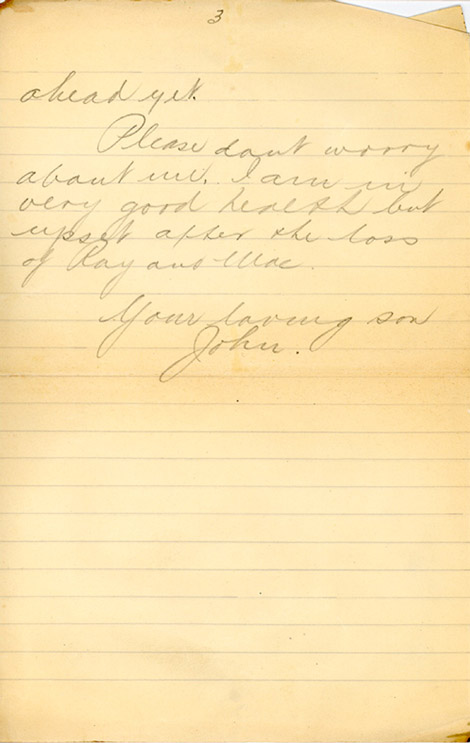 3
ahead yet.
Please dont worry
about me. I am in
very good health but
upset after the loss
of Ray and Mac.
Your loving son
John.